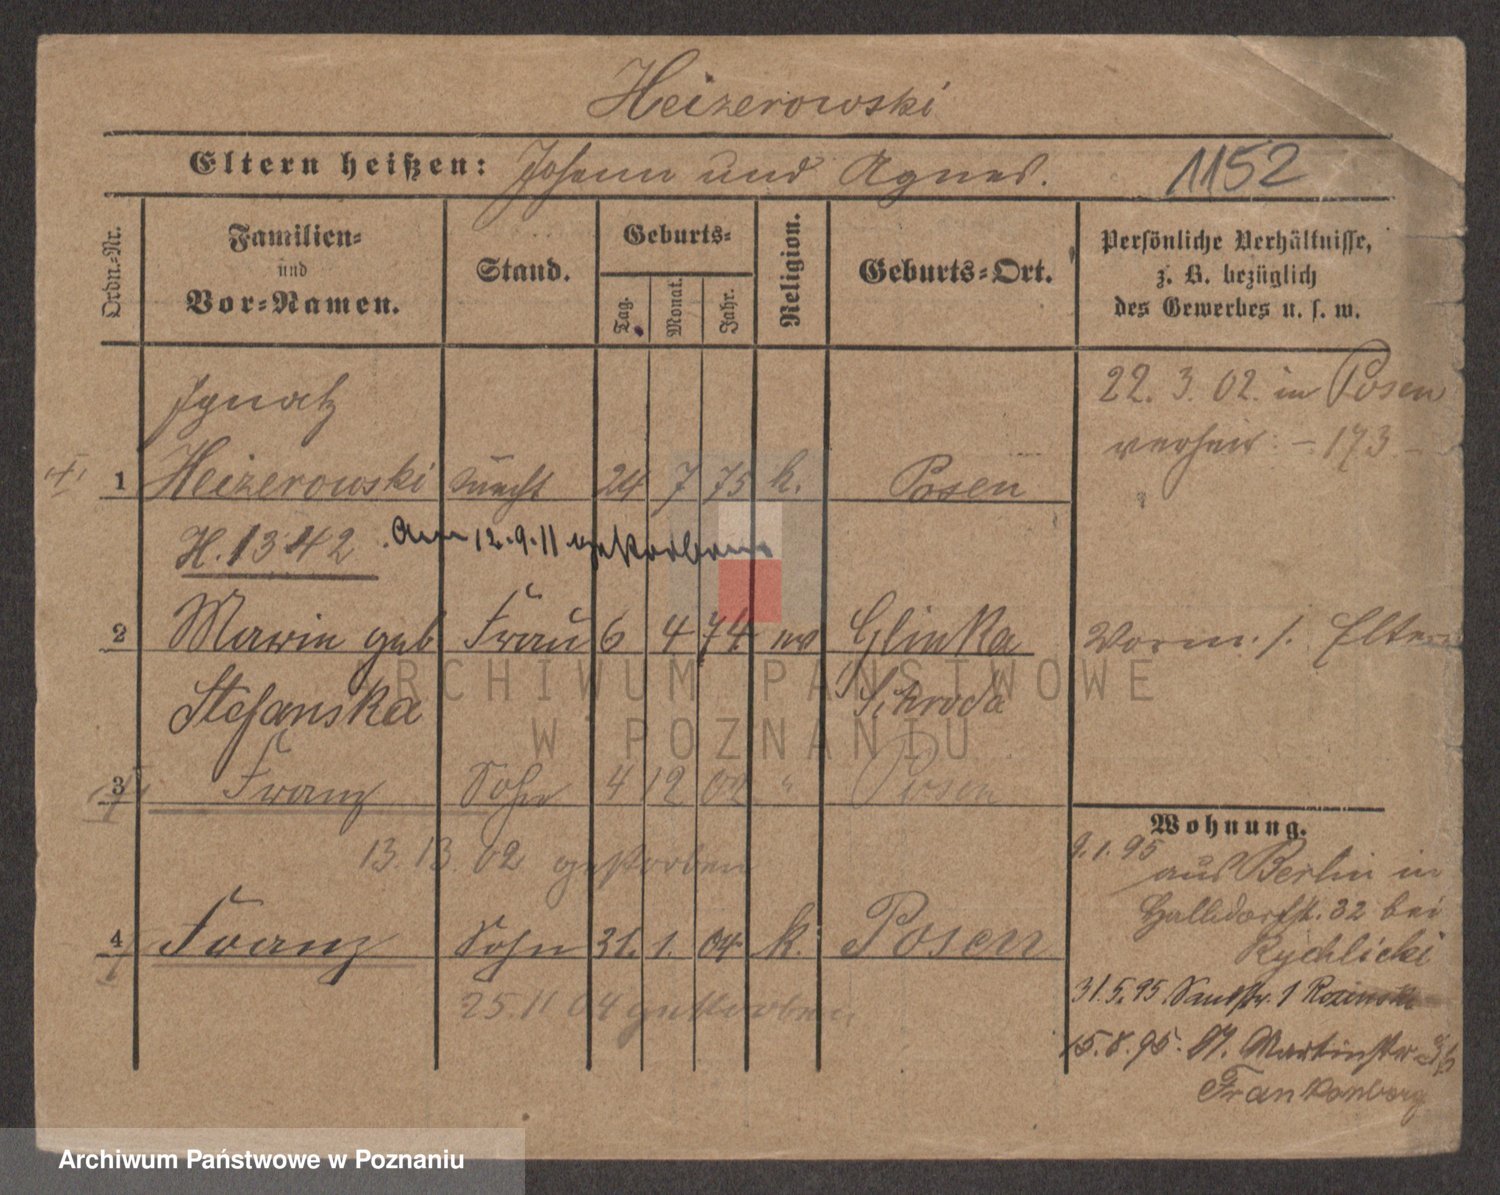 Heizerowski
Eltern heißen: Johann und Agnes.
1152
Ordn.-Nr.
Familien- und Vor-Namen.
Stand.
Geburts-
Tag.
Monat.
Jahr.
Religion.
Geburts-Ort.
Persönliche Verhältnisse,
z. B. bezüglich
des Gewerbes u. s. w.
Ignatz
1 Heizerowski Knecht 24 7 75 k. Posen
22. 3. 02. in Posen
verheir: - 173 -
H. 1342 Am 12.9.11 gestorben
2 Marie geb Frau 6 4 74 Glinka
Stefanska Schroda
Vorm. s. Eltern
3 Franz Sohn 4 12 02 " Posen
02 gestorben
4 Franz Sohn 31. 1. 04 k. Posen
25.11 04 gestorben
Wohnung.
9.1.95
aus Berlin in
32 bei
Rychlicki
31.5.95 1
15.8.95. St. Martinstr
Frankenberg
ARCHIWUM PAŃSTWOWE
W POZNANIU
Archiwum Państwowe w Poznaniu